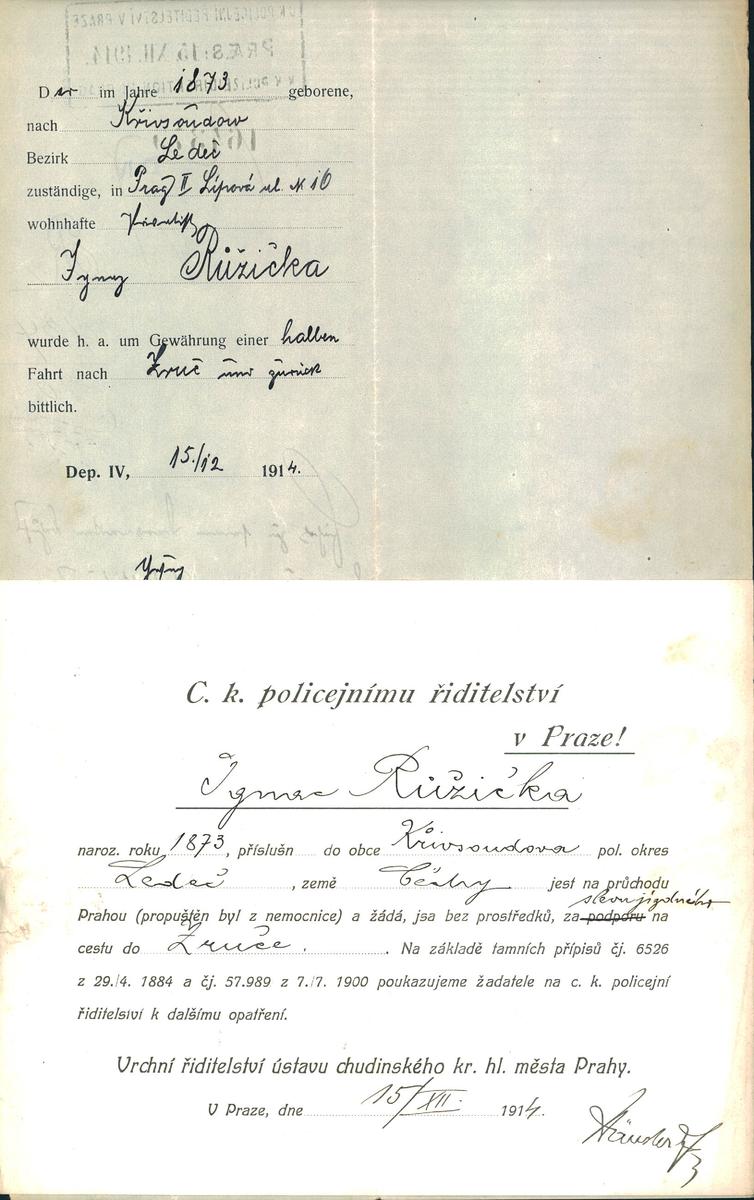 Der im Jahre 1873 geborene,
nach Křivsoudow
Bezirk Ledeč
zuständige, in Prag II Lípová ul. N 10
wohnhafte
Ignaz Růžička
wurde h. a. um Gewährung einer halben
Fahrt nach Zruč und zurück
bittlich.
Dep. IV, 15./12 1914.
C. k. policejnímu řiditelství
v Praze!
Ignac Růžička
naroz. roku 1873, příslušn do obce Křivsoudova pol. okres
Ledeč, země Čechy jest na průchodu
slevu jízdného
Prahou (propuštěn byl z nemocnice) a žádá, jsa bez prostředků, za podporu na
cestu do Zruče. Na základě tamních přípisů čj. 6526
z 29./4. 1884 a čj. 57.989 z 7./7. 1900 poukazujeme žadatele na c. k. policejní
řiditelství k dalšímu opatření.
Vrchní řiditelství ústavu chudinského kr. hl. města Prahy.
V Praze, dne 15/XII. 1914.